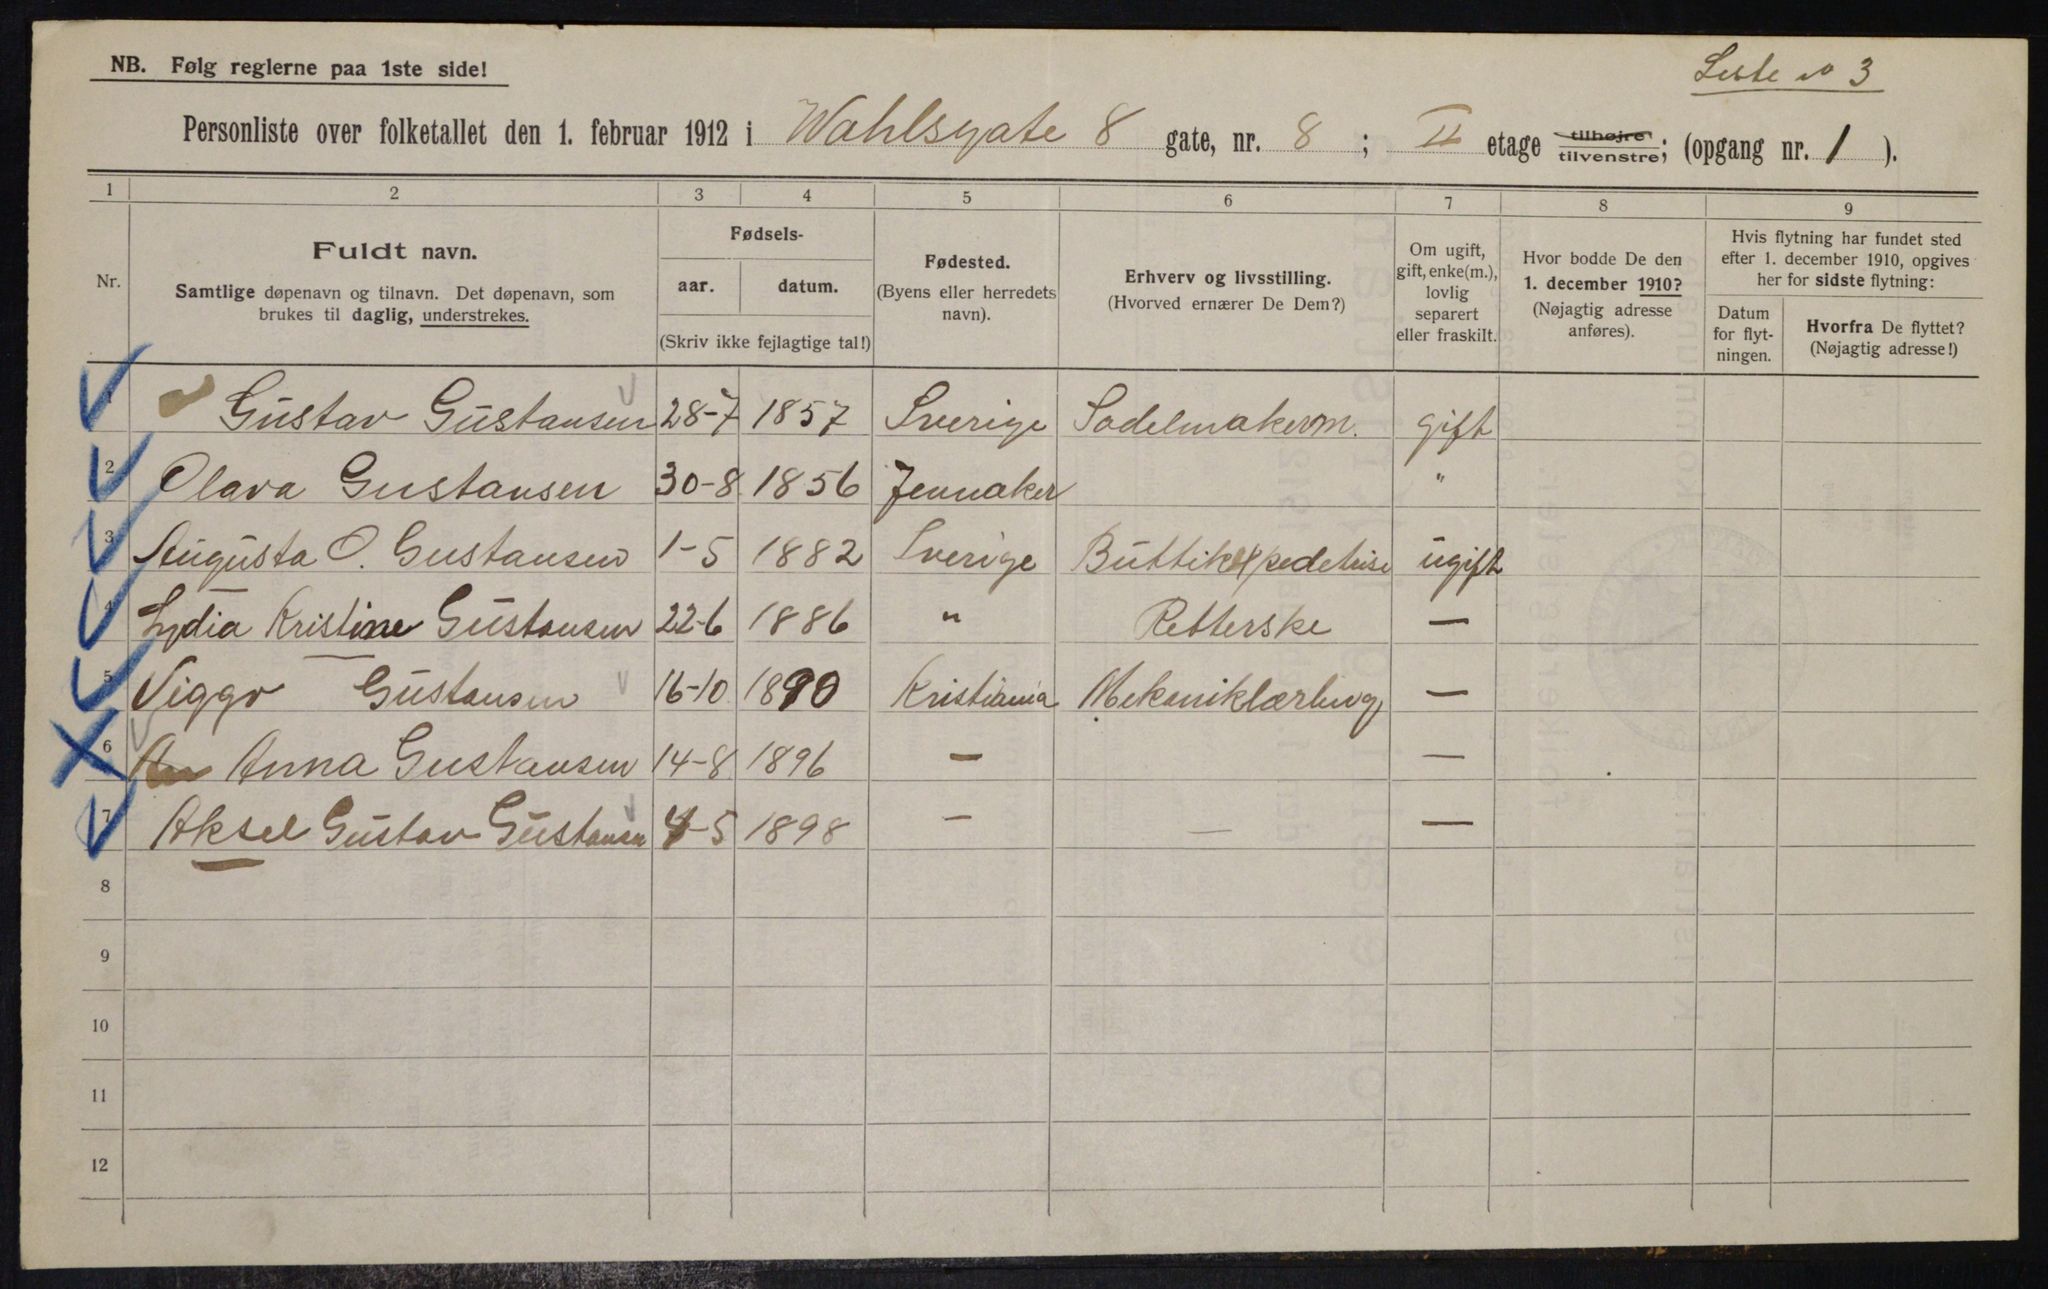 Liste no 3
NB. Følg reglerne paa 1ste side!
Personliste over folketallet den 1. februar 1912 i Wahlsgate 8 gate, nr. 8 ; II etage tilhøjre tilvenstre; (opgang nr. 1 ).
1 2 3 4 5 6 7 8 9
Nr.
Fuldt navn.
Samtlige døpenavn og tilnavn. Det døpenavn, som
brukes til daglig, understrekes.
Fødsels-
aar. datum.
(Skriv ikke fejlagtige tal!)
Fødested.
(Byens eller herredets
navn).
Erhverv og livsstilling.
(Hvorved ernærer De Dem?)
Om ugift,
gift, enke(m.),
lovlig
separert
eller fraskilt.
Hvor bodde De den
1. december 1910?
(Nøjagtig adresse
anføres).
Hvis flytning har fundet sted
efter 1. december 1910, opgives
her for sidste flytning:
Datum
for flyt-
ningen.
Hvorfra De flyttet?
(Nøjagtig adresse!)
Gustav Gustausen 28-7 1857 Sverige Sadelmakerm. gift
2 Olava Gustausen 30-8 1856 Jennaker "
3 Augusta O. Gustausen 1-5 1882 Sverige Buttikexpedetrise ugift
4 Lydia Kristine Gustausen 22-6 1886 " Retterske —
5 Viggo Gustausen 16-10 1890 Kristiania Mekaniklærling —
6 An Anna Gustausen 14-8 1896 — —
7 Aksel Gustav Gustausen 4-5 1898 — — —
8
9
10
11
12